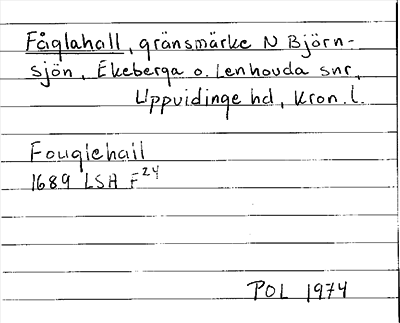 Fåglahall, gränsmärke N Björn-
sjön, Ekeberga o. Lenhovda snr,
Uppvidinge hd, Kron. l.
Fouglehall
1689 LSA F24
POL 1974